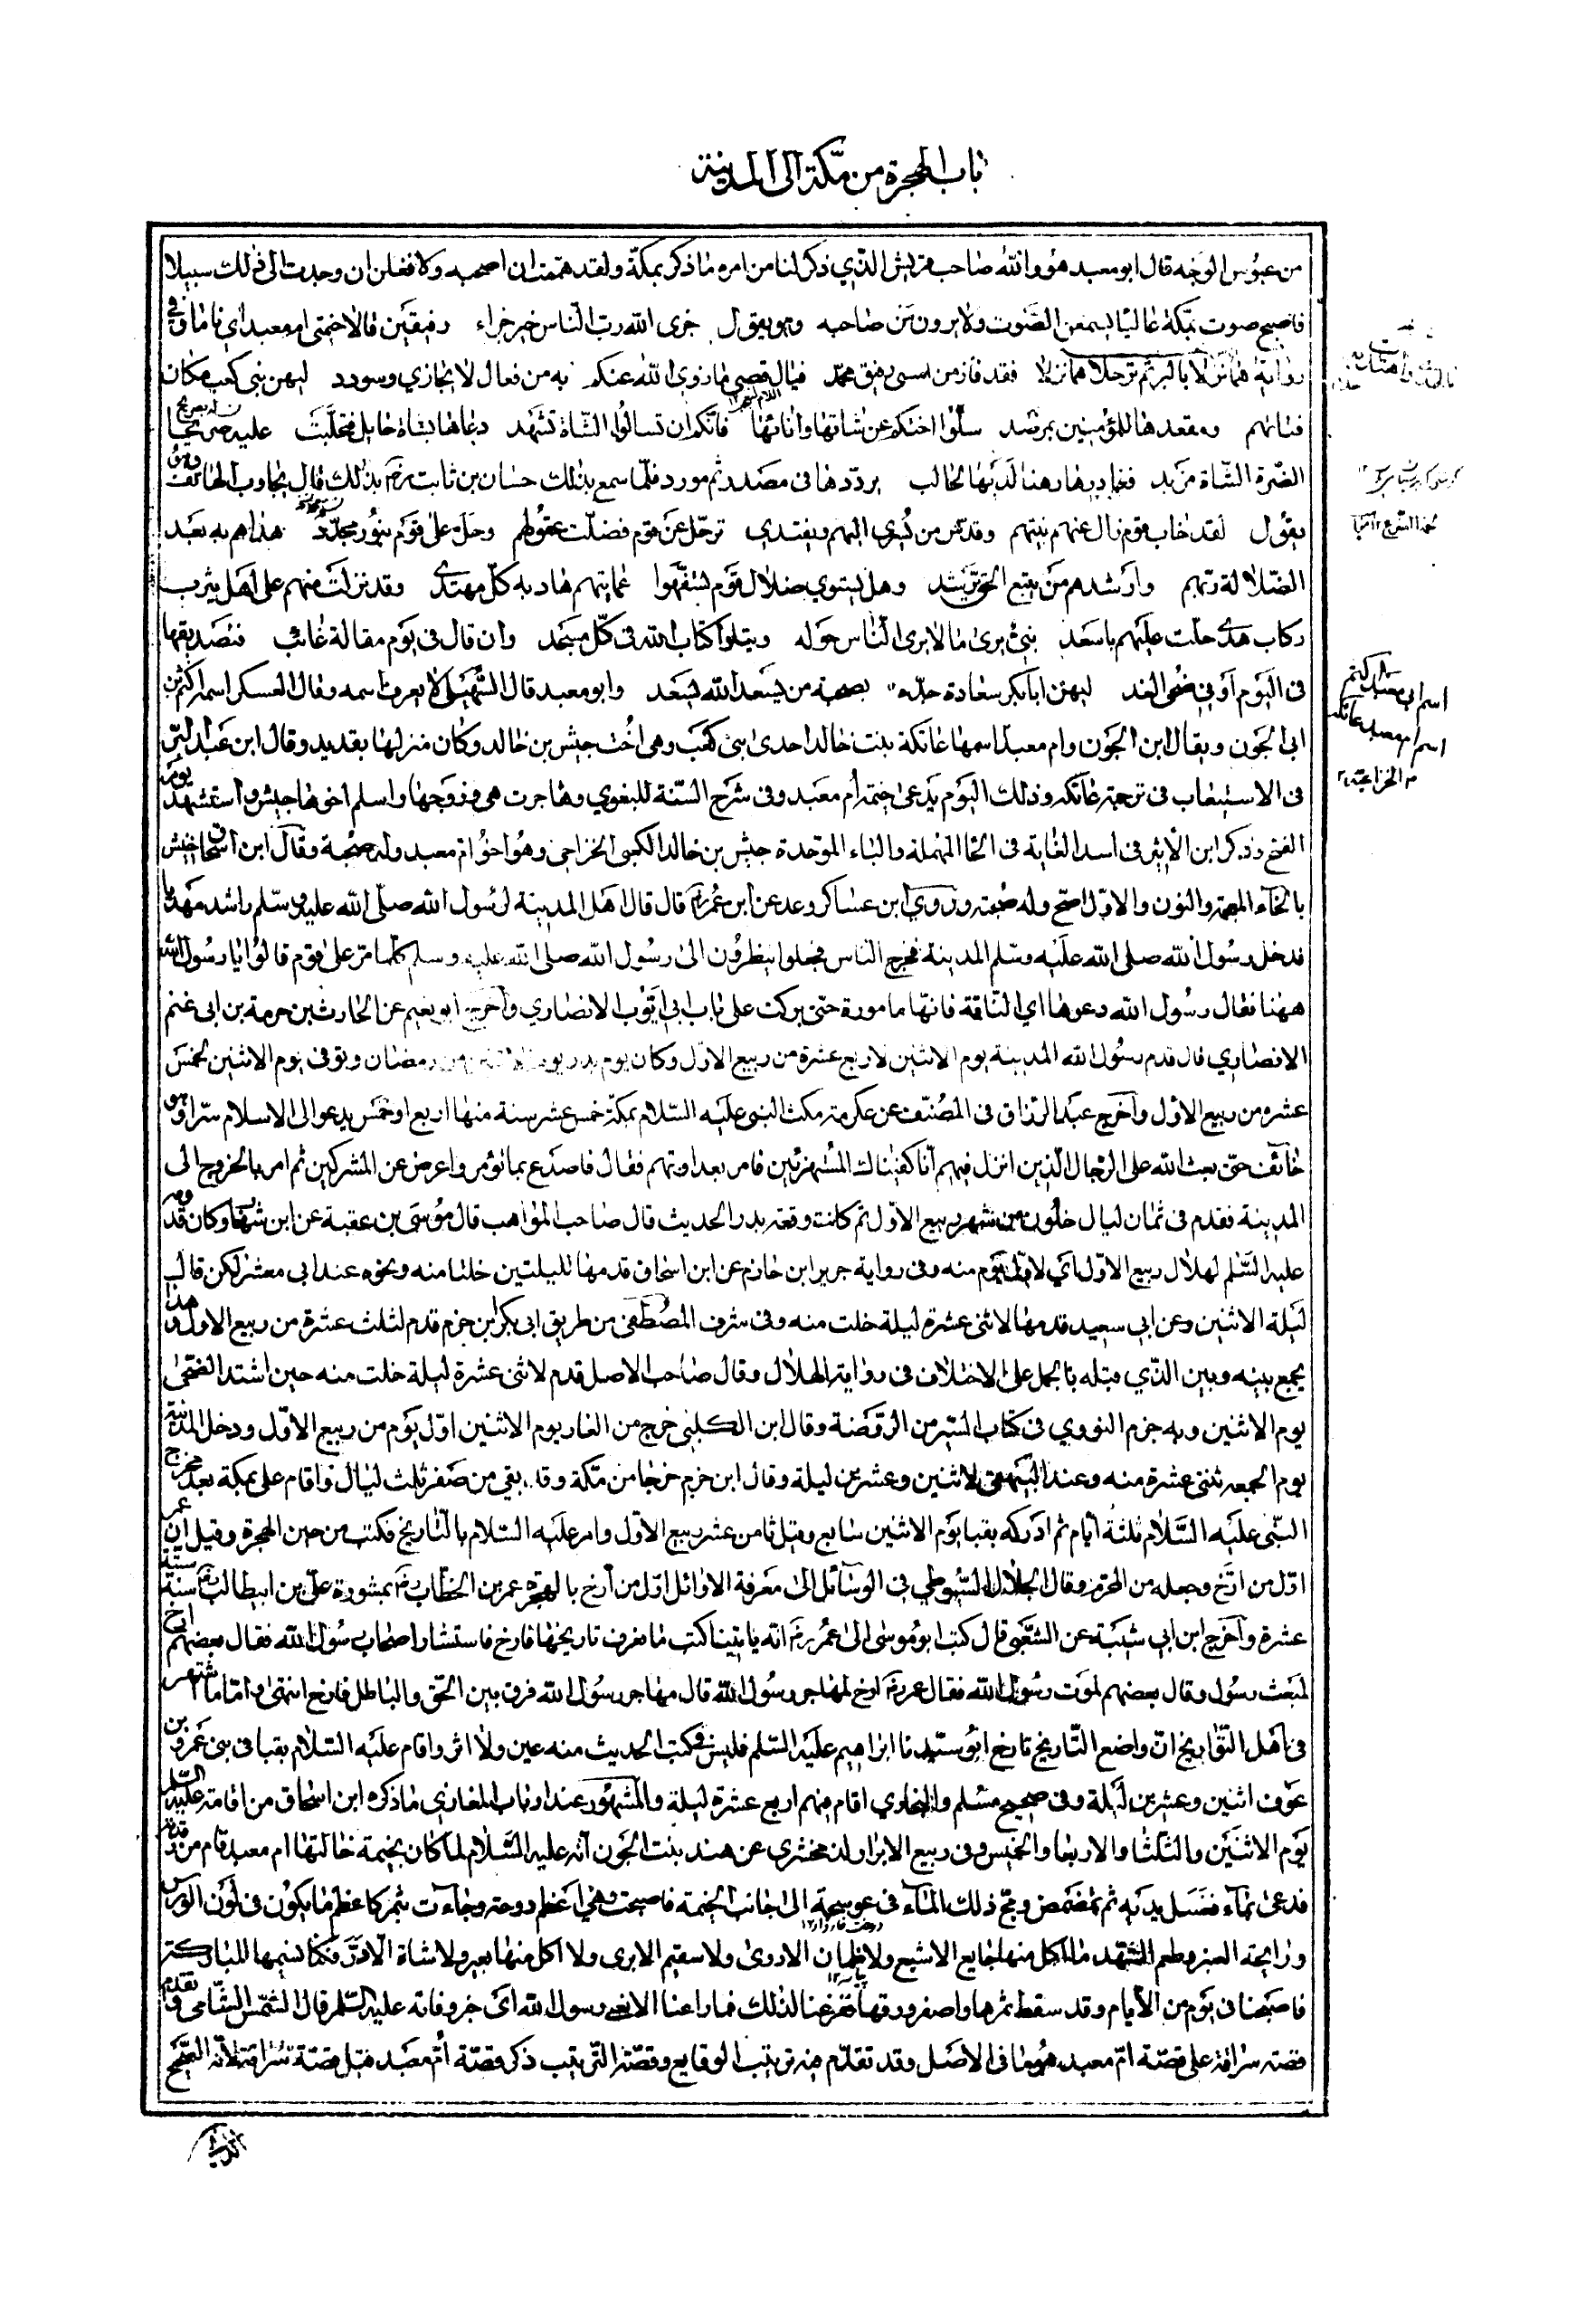 باب الهجرة من مكة الى المدينة
من عبوس الوجه قال ابو معبد هو والله صاحب قريش الذي ذكر لنا من امره ما ذكر بمكة ولقد هممت ان اصحبه ولافعلن ان وجدت الى ذلك سبيلا
فاصبح صوت بمكة عاليا يسمعن الصوت ولا يرون من صاحبه وهو يقول جزى الله رب الناس خير جزاء رفيقين قالا خيمتي ام معبد اي ناما وفي
رواية هما نزلا بالبر ثم ترحلا هما نزلا فقد فاز من امسى رفيق محمد فيال قصي ما زوي الله عنكم به من فعال لا تجازي وسودد ليهن بني كعب مكان
فتاتهم ومقعدها للمؤمنين بمرصد سلوا اختكم عن شاتها وانائها فانكم ان تسالوا الشاة تشهد دعاها بشاة حايل فتحلبت عليه
الضرة الشاة مزبد فغادرها رهنا لديها الحالب يرددها في مصدر ثم مورد فلما سمع بذلك حسان بن ثابت رض بذلك قال يجاوب الهاتف وهو
يقول لقد خاب قوم زال عنهم نبيهم وقدس من يسري اليهم ويغتدي ترحل عن قوم فضلت عقولهم وحل على قوم بنور مجدد هداهم به بعد
الضلالة ربهم وارشدهم من يتبع الحق يرشد وهل يستوي ضلال قوم تسفهوا عمايتهم هاد به كل مهتدى وقد نزلت منهم على اهل يثرب
ركاب هدى حلت عليهم باسعد نبي يرى ما لا يرى الناس حوله ويتلو كتاب الله في كل مسجد وان قال في يوم مقالة غائب فتصديقها
في اليوم او في ضحى الغد ليهن ابا بكر سعادة جده بصحبة من يسعد الله يسعد وابو معبد قال السهيلي لا يعرف اسمه وقال العسكر اسمه اكثم بن
ابي الجون ويقال ابن الجون وام معبد اسمها عاتكة بنت خالد احدى بني كعب وهي اخت حبيش بن خالد وكان منزلها بقديد وقال ابن عبد البر
في الاستيعاب في ترجمة عاتكه وذلك اليوم يدعى خيمة ام معبد وفي شرح السنة للبغوي وهاجرت هي وزوجها واسلم اخوها حبيش واستشهد يوم
الفتح وذكر ابن الاثير في اسد الغابة في الحا المهملة والباء الموحدة حبيش بن خالد الكعبي الخزاعي وهو اخو ام معبد وله صحبة وقال ابن اسحاق خنيش
بالخاء المعجمة والنون والاول اصح وله صحبته وروي ابن عساكر وعد عن ابن عمر رض قال قال اهل المدينة لرسول الله صلى الله عليه وسلم راشد مهديا
فدخل رسول الله صلى الله عليه وسلم المدينة فخرج الناس فجعلوا ينظرون الى رسول الله صلى الله عليه وسلم كلما مر على قوم قالوا يا رسول الله
ههنا فقال رسول الله دعوها اي الناقة فانها مامورة حتى بركت على باب ابي ايوب الانصاري واخرج ابو نعيم عن الحارث بن خزمة بن ابي غنم
الانصاري قال قدم رسول الله المدينة يوم الاثنين لاربع عشرة من ربيع الاول وكان يوم بدر يوم الاثنين من رمضان وتوفي يوم الاثنين لخمس
عشرة من ربيع الاول واخرج عبد الرزاق في المصنف عن عكرمة مكث النبي عليه السلام بمكة خمس عشر سنة منها اربع او خمس يدعو الى الاسلام سرا وهو
خائف حتى بعث الله على الرجال الذين انزل فيهم انا كفيناك المستهزئين فامر بعداوتهم فقال فاصدع بما تؤمر واعرض عن المشركين ثم امر بالخروج الى
المدينة فقدم في ثمان ليال خلون من شهر ربيع الاول ثم كانت وقعة بدر الحديث قال صاحب المواهب قال موسى بن عقبة عن ابن شهاب وكان قدومه
عليه السلم لهلال ربيع الاول اي لاول يوم منه وفي رواية جرير ابن حازم عن ابن اسحاق قدمها لليلتين خلتا منه ونحوه عند ابي معشر لكن قال
ليلة الاثنين وعن ابي سعيد قدمها لاثني عشرة ليلة خلت منه وفي شرف المصطفى من طريق ابي بكر ابن حزم قدم لثلث عشرة من ربيع الاول وهذا
يجمع بينه وبين الذي قبله بالحمل على الاختلاف في رواية الهلال وقال صاحب الاصل قدم لاثني عشرة ليلة خلت منه حين اشتد الضحى
يوم الاثنين وبه جزم النووي في كتاب السير من الروضة وقال ابن الكلبي خرج من الغار يوم الاثنين اول يوم من ربيع الاول ودخل المدينة
يوم الجمعه ثنتي عشرة منه وعند البيهقي لاثنين وعشرين ليلة وقال ابن حزم خرجا من مكة وقد بقي من صفر ثلث ليال واقام علي بمكة بعد مخرج
النبي عليه السلام ثلثة ايام ثم ادركه بقبا يوم الاثنين سابع وقيل ثامن عشر ربيع الاول وامر عليه السلام بالتاريخ فكتب من حين الهجرة وقيل ان عمر
اول من ارخ وجعله من المحرم وقال الجلال السيوطي في الوسائل الى معرفة الاوائل اول من ارخ بالهجرة عمر بن الخطاب رض بمشورة علي بن ابيطالب رض سنة ستة
عشرة واخرج ابن ابي شيبة عن الشعبي قال كتب ابو موسى الى عمر رض انه ياتينا كتب ما نعرف تاريخها فارخ فاستشار اصحاب رسول الله فقال بعضهم ارخ
لمبعث رسول وقال بعضهم لموت رسول الله فقال عمر رض ارخ لمهاجر رسول الله قال مهاجر رسول الله فرق بين الحق والباطل فارخ انتهى واما ما اشتهر
في اهل التواريخ ان واضع التاريخ تارخ ابو سيدنا ابراهيم عليه السلم فليس في كتب الحديث منه عين ولا اثر واقام عليه السلام بقبا في بني عمرو بن
عوف اثنين وعشرين ليلة وفي صحيح مسلم والبخاري اقام فيهم اربع عشرة ليلة والمشهور عند ارباب المغازي ما ذكره ابن اسحاق من اقامته عليه السلم
يوم الاثنين والثلثا والاربعا والخميس وفي ربيع الابرار للزمخشري عن هند بنت الجون انه عليه السلام لما كان بخيمة خالتها ام معبد قام من رقدته
فدعى بماء فغسل يديه ثم تمضمض ومج ذلك الماء في عوسجة الى جانب الخيمة فاصبحت وهي اعظم دوحة وجاءت بثمر كاعظم ما يكون في لون الورس
ورايحة العنبر وطعم الشهد ما اكل منها جايع الا شبع ولا ظمان الا روى ولا سقيم الا بري ولا اكل منها بعير ولا شاة الا در فكنا نسميها المباركة
فاصبحنا في يوم من الايام وقد سقط ثمرها واصفر ورقها ففزعنا لذلك فما راعنا الا نعي رسول الله اي خبر وفاته عليه السلم قال الشمس الشامي وتقدم
قصته سراقة على قصة ام معبد هو ما في الاصل وقد تقدم منه ترتيب الوقايع وقصة الترتيب ذكر قصة ام معبد قبل قصة سراقة لانه الصحيح
اسم ابي معبد اكثم
اسم ام معبد عاتكه
الخزاعية